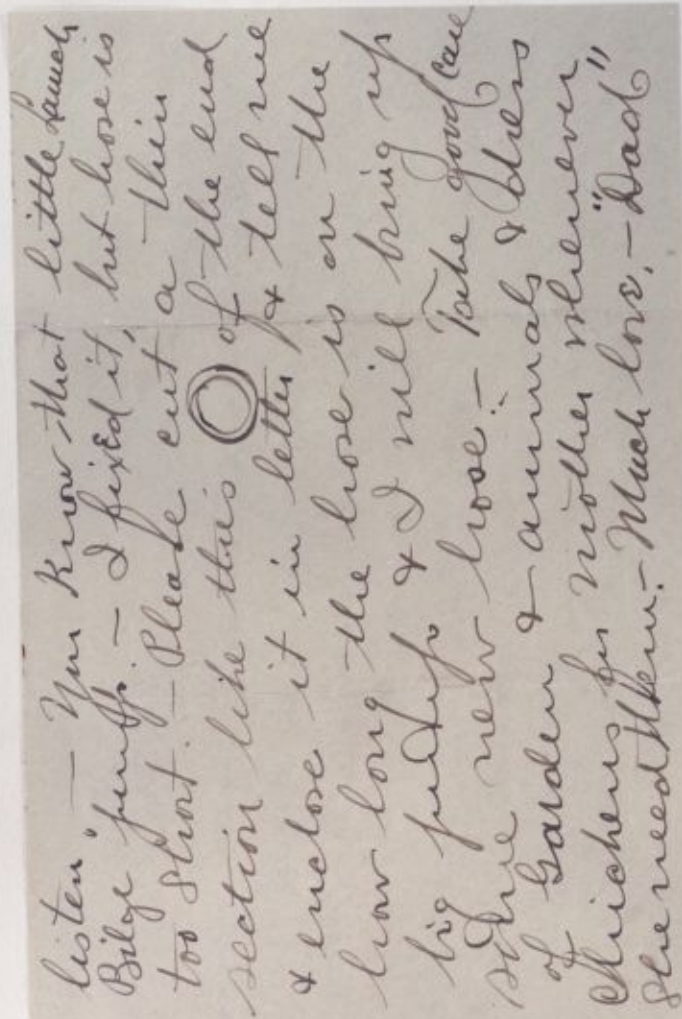 listen". — You Know that little Launch
Bilge pump. — I fixed it, but hose is
too short. — Please cut a thin
section like this of the end
& enclose it in letter & tell me
how long the hose is on the
big pump & I will bring up
some new hose. — Take good care
of Garden & animals & dress
Chickens for mother whenever
She need them. — Much love, — "Dad"